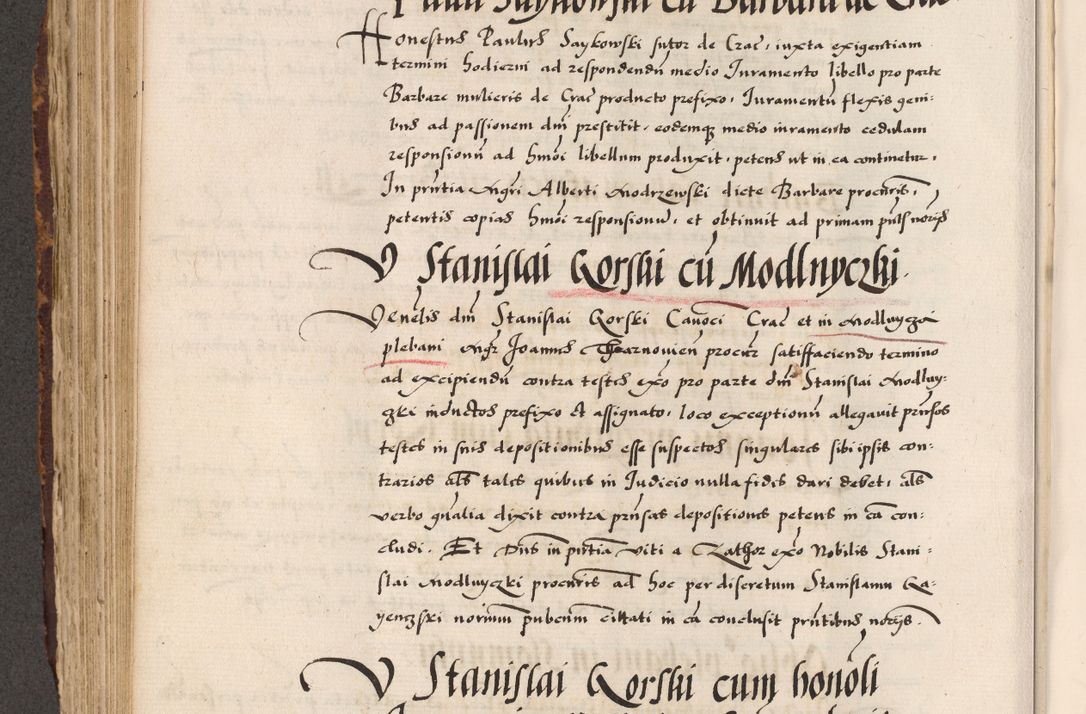 Honestus Paulus Saykowski sutor de Crac, iuxta exigentiam
termini hodierni ad respondendū medio Iuramento libello pro parte
Barbare mulieris de Crac producto prefixo, Iuramentū flexis geni-
bus ad passionem dni prestitit, eodemq medio iuramento cedulam
responsionū ad hmoi libellum produxit, petens ut in ea continetur,
In pntia Mgri Alberti Modrzewski dicte Barbare procuris,
petentis copias hmoi responsionū, et obtinuit ad primam
V Stanislai Gorski cū Modlnyczki
Venelis dni Stanislai Gorski Canoci Crac et in Modlnycza
plebani Mgr Joannes Tharnovien procur satisfaciendo termino
ad excipiendū contra testes exo pro parte dni Stanislai Modlny-
czki inductos prefixo et assignato, loco exceptionū allegavit prnsos
testes in suis depositionibus esse suspectos singulares sibi ipsis con-
trarios als tales quibus in Iudicio nulla fides dari debet, als
verbo gnalia dixit contra prnsas depositiones petens in ca con-
cludi. Et Dns in pntia viti a Czathor exo Nobilis Stani-
slai Modlnyczki procuris ad hoc per discretum Stanislaum Ga-
yenczski norium pubcum cittati in ca conclusit pntibus noriis.
V Stanislai Gorski cum honoli